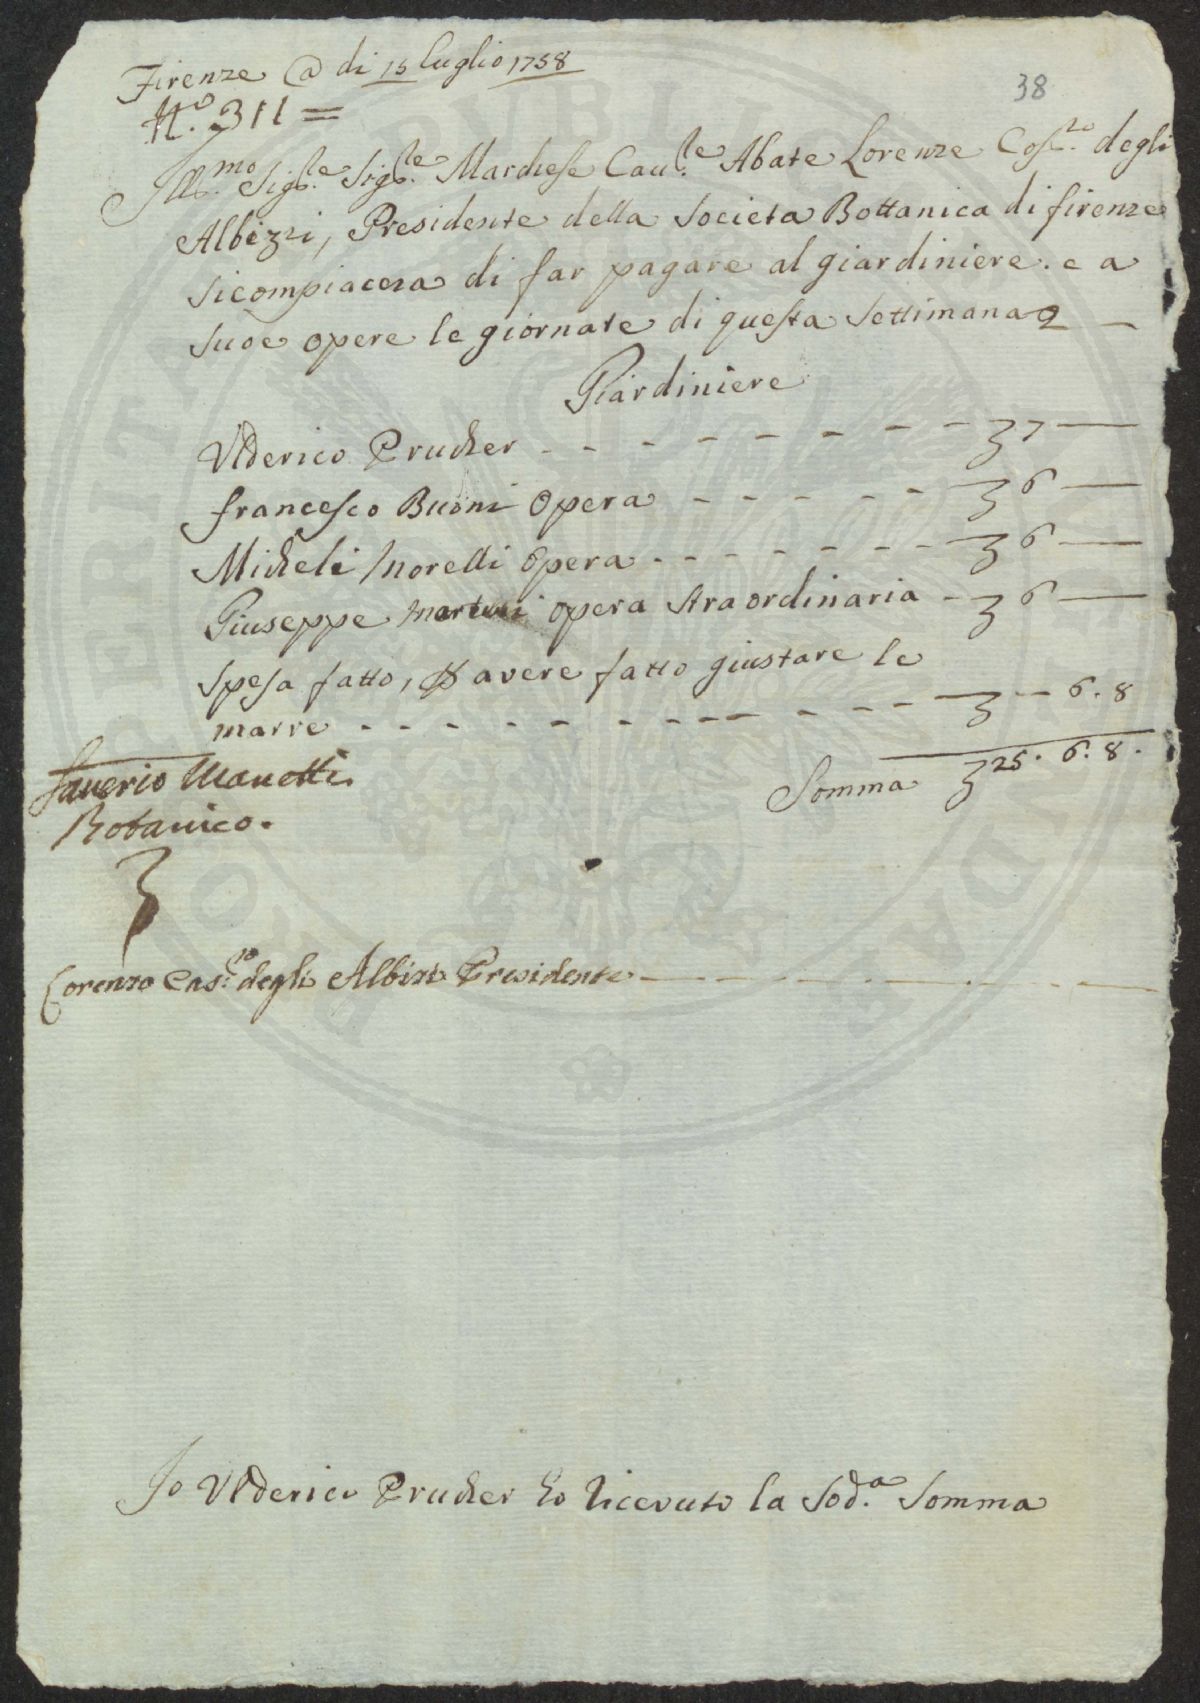 Firenze @ di 15 Luglio 1758
38
N.º 311 =
Ill.mo Sig.re Sig.re Marchese Cau.re Abate Lorenzo Cos.zo degli
Albizzi, Presidente della Societa Bottanica di firenze
si compiacera di far pagare al giardiniere. e a
suoe opere le giornate di questa settimana
Giardiniere
Vlderico Prucher - - - - - - - - 7 —
francesco Buoni Opera - - - - - 6 —
Micheli Morelli opera - - - - - - 6 —
Giuseppe Martini opera straordinaria - 6 —
spesa fatto, p avere fatto giustare le
marre - - - - - - - - - - - - — 6. 8
Somma 25. 6. 8.
Saverio Manetti
Botanico.
Lorenzo Cas.zo degli Albizi Presidente
Io Vlderico Prucher ho riceuuto la Sod.a Somma